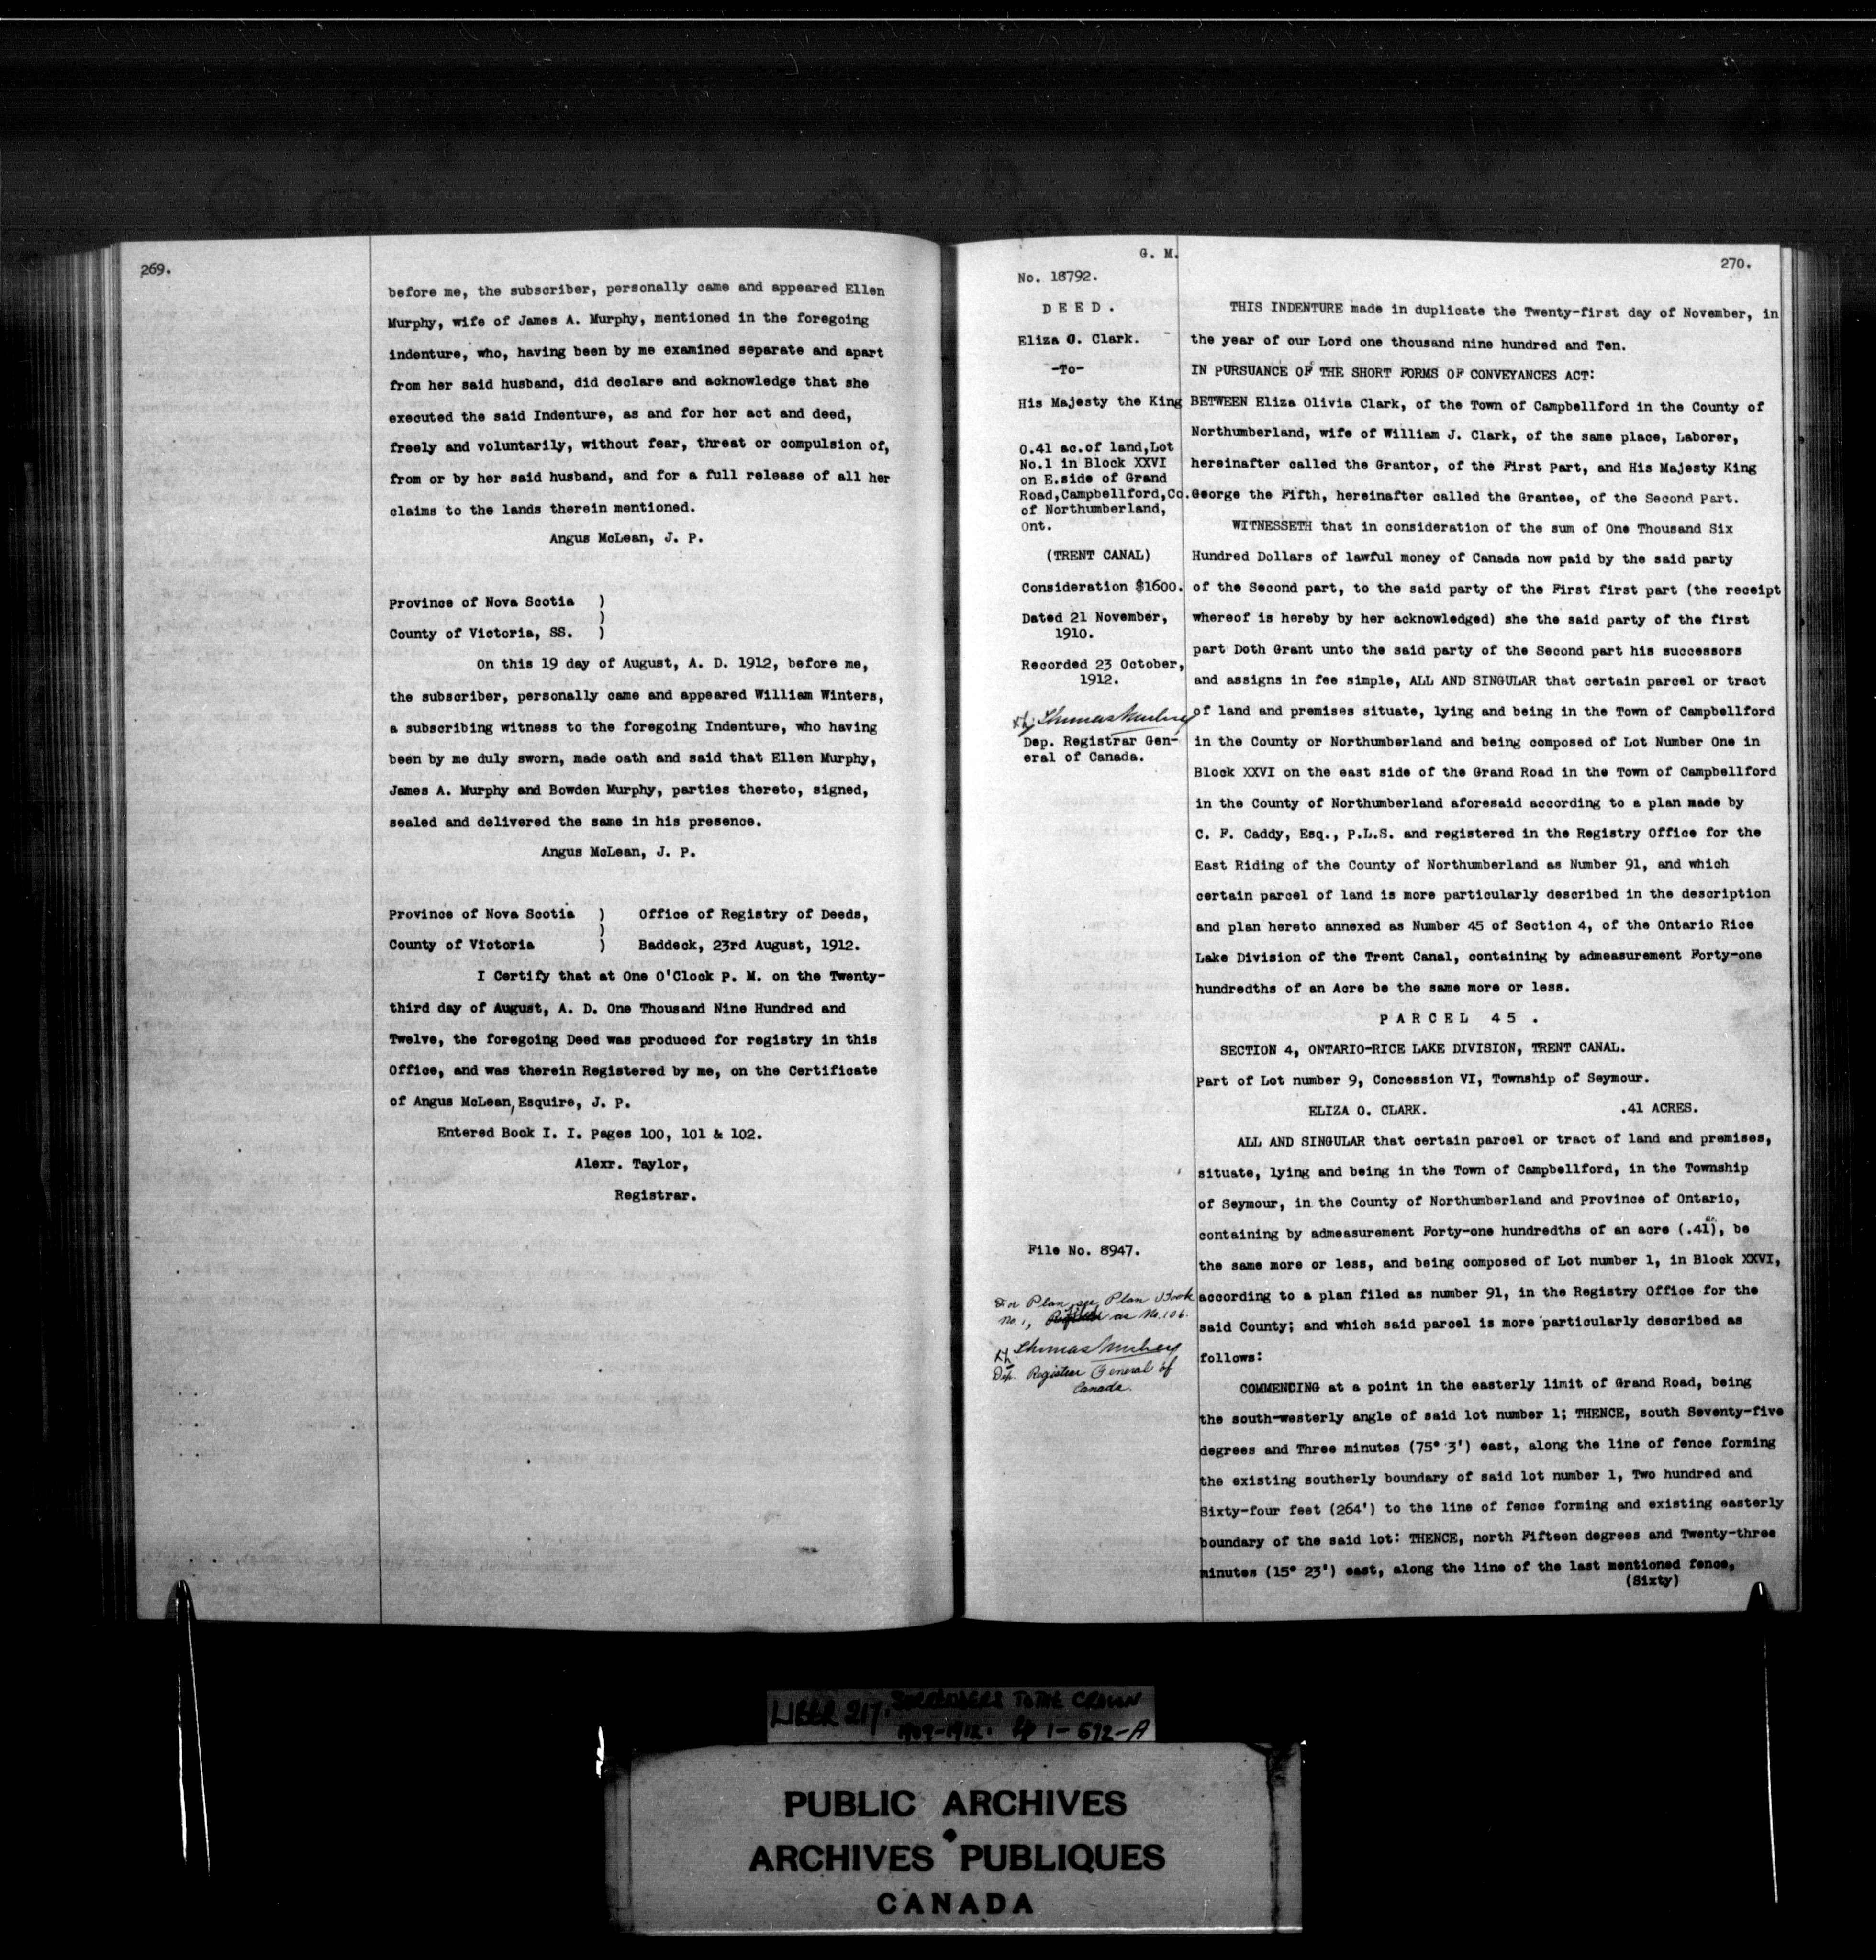 269.
before me, the subscriber, personally came and appeared Ellen
Murphy, wife of James A. Murphy, mentioned in the foregoing
indenture, who, having been by me examined separate and apart
from her said husband, did declare and acknowledge that she
executed the said Indenture, as and for her act and deed,
freely and voluntarily, without fear, threat or compulsion of,
from or by her said husband, and for a full release of all her
claims to the lands therein mentioned.
Angus McLean, J. P.
Province of Nova Scotia )
)
County of Victoria, SS. )
On this 19 day of August, A. D. 1912, before me,
the subscriber, personally came and appeared William Winters,
a subscribing witness to the foregoing Indenture, who having
been by me duly sworn, made oath and said that Ellen Murphy,
James A. Murphy and Bowden Murphy, parties thereto, signed,
sealed and delivered the same in his presence.
Angus McLean, J. P.
Province of Nova Scotia ) Office of Registry of Deeds,
)
County of Victoria ) Baddeck, 23rd August, 1912.
I Certify that at One O'Clock P. M. on the Twenty-
third day of August, A. D. One Thousand Nine Hundred and
Twelve, the foregoing Deed was produced for registry in this
Office, and was therein Registered by me, on the Certificate
of Angus McLean, Esquire, J. P.
Entered Book I. I. Pages 100, 101 & 102.
Alexr. Taylor,
Registrar.
G. M.
No. 18792.
DEED.
Eliza O. Clark.
-To-
His Majesty the King
0.41 ac.of land,Lot
No.1 in Block XXVI
on E.side of Grand
Road,Campbellford,Co.
of Northumberland,
Ont.
(TRENT CANAL)
Consideration $1600.
Dated 21 November,
1910.
Recorded 23 October,
1912.
Thomas Mulvey
Dep. Registrar Gen-
eral of Canada.
File No. 8947.
For Plan see Plan Book
No. 1, as No. 106.
Thomas Mulvey
Dep. Registrar General of
Canada.
270.
THIS INDENTURE made in duplicate the Twenty-first day of November, in
the year of our Lord one thousand nine hundred and Ten.
IN PURSUANCE OF THE SHORT FORMS OF CONVEYANCES ACT:
BETWEEN Eliza Olivia Clark, of the Town of Campbellford in the County of
Northumberland, wife of William J. Clark, of the same place, Laborer,
hereinafter called the Grantor, of the First Part, and His Majesty King
George the Fifth, hereinafter called the Grantee, of the Second Part.
WITNESSETH that in consideration of the sum of One Thousand Six
Hundred Dollars of lawful money of Canada now paid by the said party
of the Second part, to the said party of the First first part (the receipt
whereof is hereby by her acknowledged) she the said party of the first
part Doth Grant unto the said party of the Second part his successors
and assigns in fee simple, ALL AND SINGULAR that certain parcel or tract
of land and premises situate, lying and being in the Town of Campbellford
in the County or Northumberland and being composed of Lot Number One in
Block XXVI on the east side of the Grand Road in the Town of Campbellford
in the County of Northumberland aforesaid according to a plan made by
C. F. Caddy, Esq., P.L.S. and registered in the Registry Office for the
East Riding of the County of Northumberland as Number 91, and which
certain parcel of land is more particularly described in the description
and plan hereto annexed as Number 45 of Section 4, of the Ontario Rice
Lake Division of the Trent Canal, containing by admeasurement Forty-one
hundredths of an Acre be the same more or less.
PARCEL 45.
SECTION 4, ONTARIO-RICE LAKE DIVISION, TRENT CANAL.
Part of Lot number 9, Concession VI, Township of Seymour.
ELIZA O. CLARK. .41 ACRES.
ALL AND SINGULAR that certain parcel or tract of land and premises,
situate, lying and being in the Town of Campbellford, in the Township
of Seymour, in the County of Northumberland and Province of Ontario,
containing by admeasurement Forty-one hundredths of an acre (.41), be
the same more or less, and being composed of Lot number 1, in Block XXVI,
according to a plan filed as number 91, in the Registry Office for the
said County; and which said parcel is more particularly described as
follows:
COMMENCING at a point in the easterly limit of Grand Road, being
the south-westerly angle of said lot number 1; THENCE, south Seventy-five
degrees and Three minutes (75° 3') east, along the line of fence forming
the existing southerly boundary of said lot number 1, Two hundred and
Sixty-four feet (264') to the line of fence forming and existing easterly
boundary of the said lot: THENCE, north Fifteen degrees and Twenty-three
minutes (15° 23') east, along the line of the last mentioned fence,
(Sixty)
LIBER 217. SURRENDERS TO THE CROWN
1909-1912. 1-592-A
PUBLIC ARCHIVES
ARCHIVES PUBLIQUES
CANADA